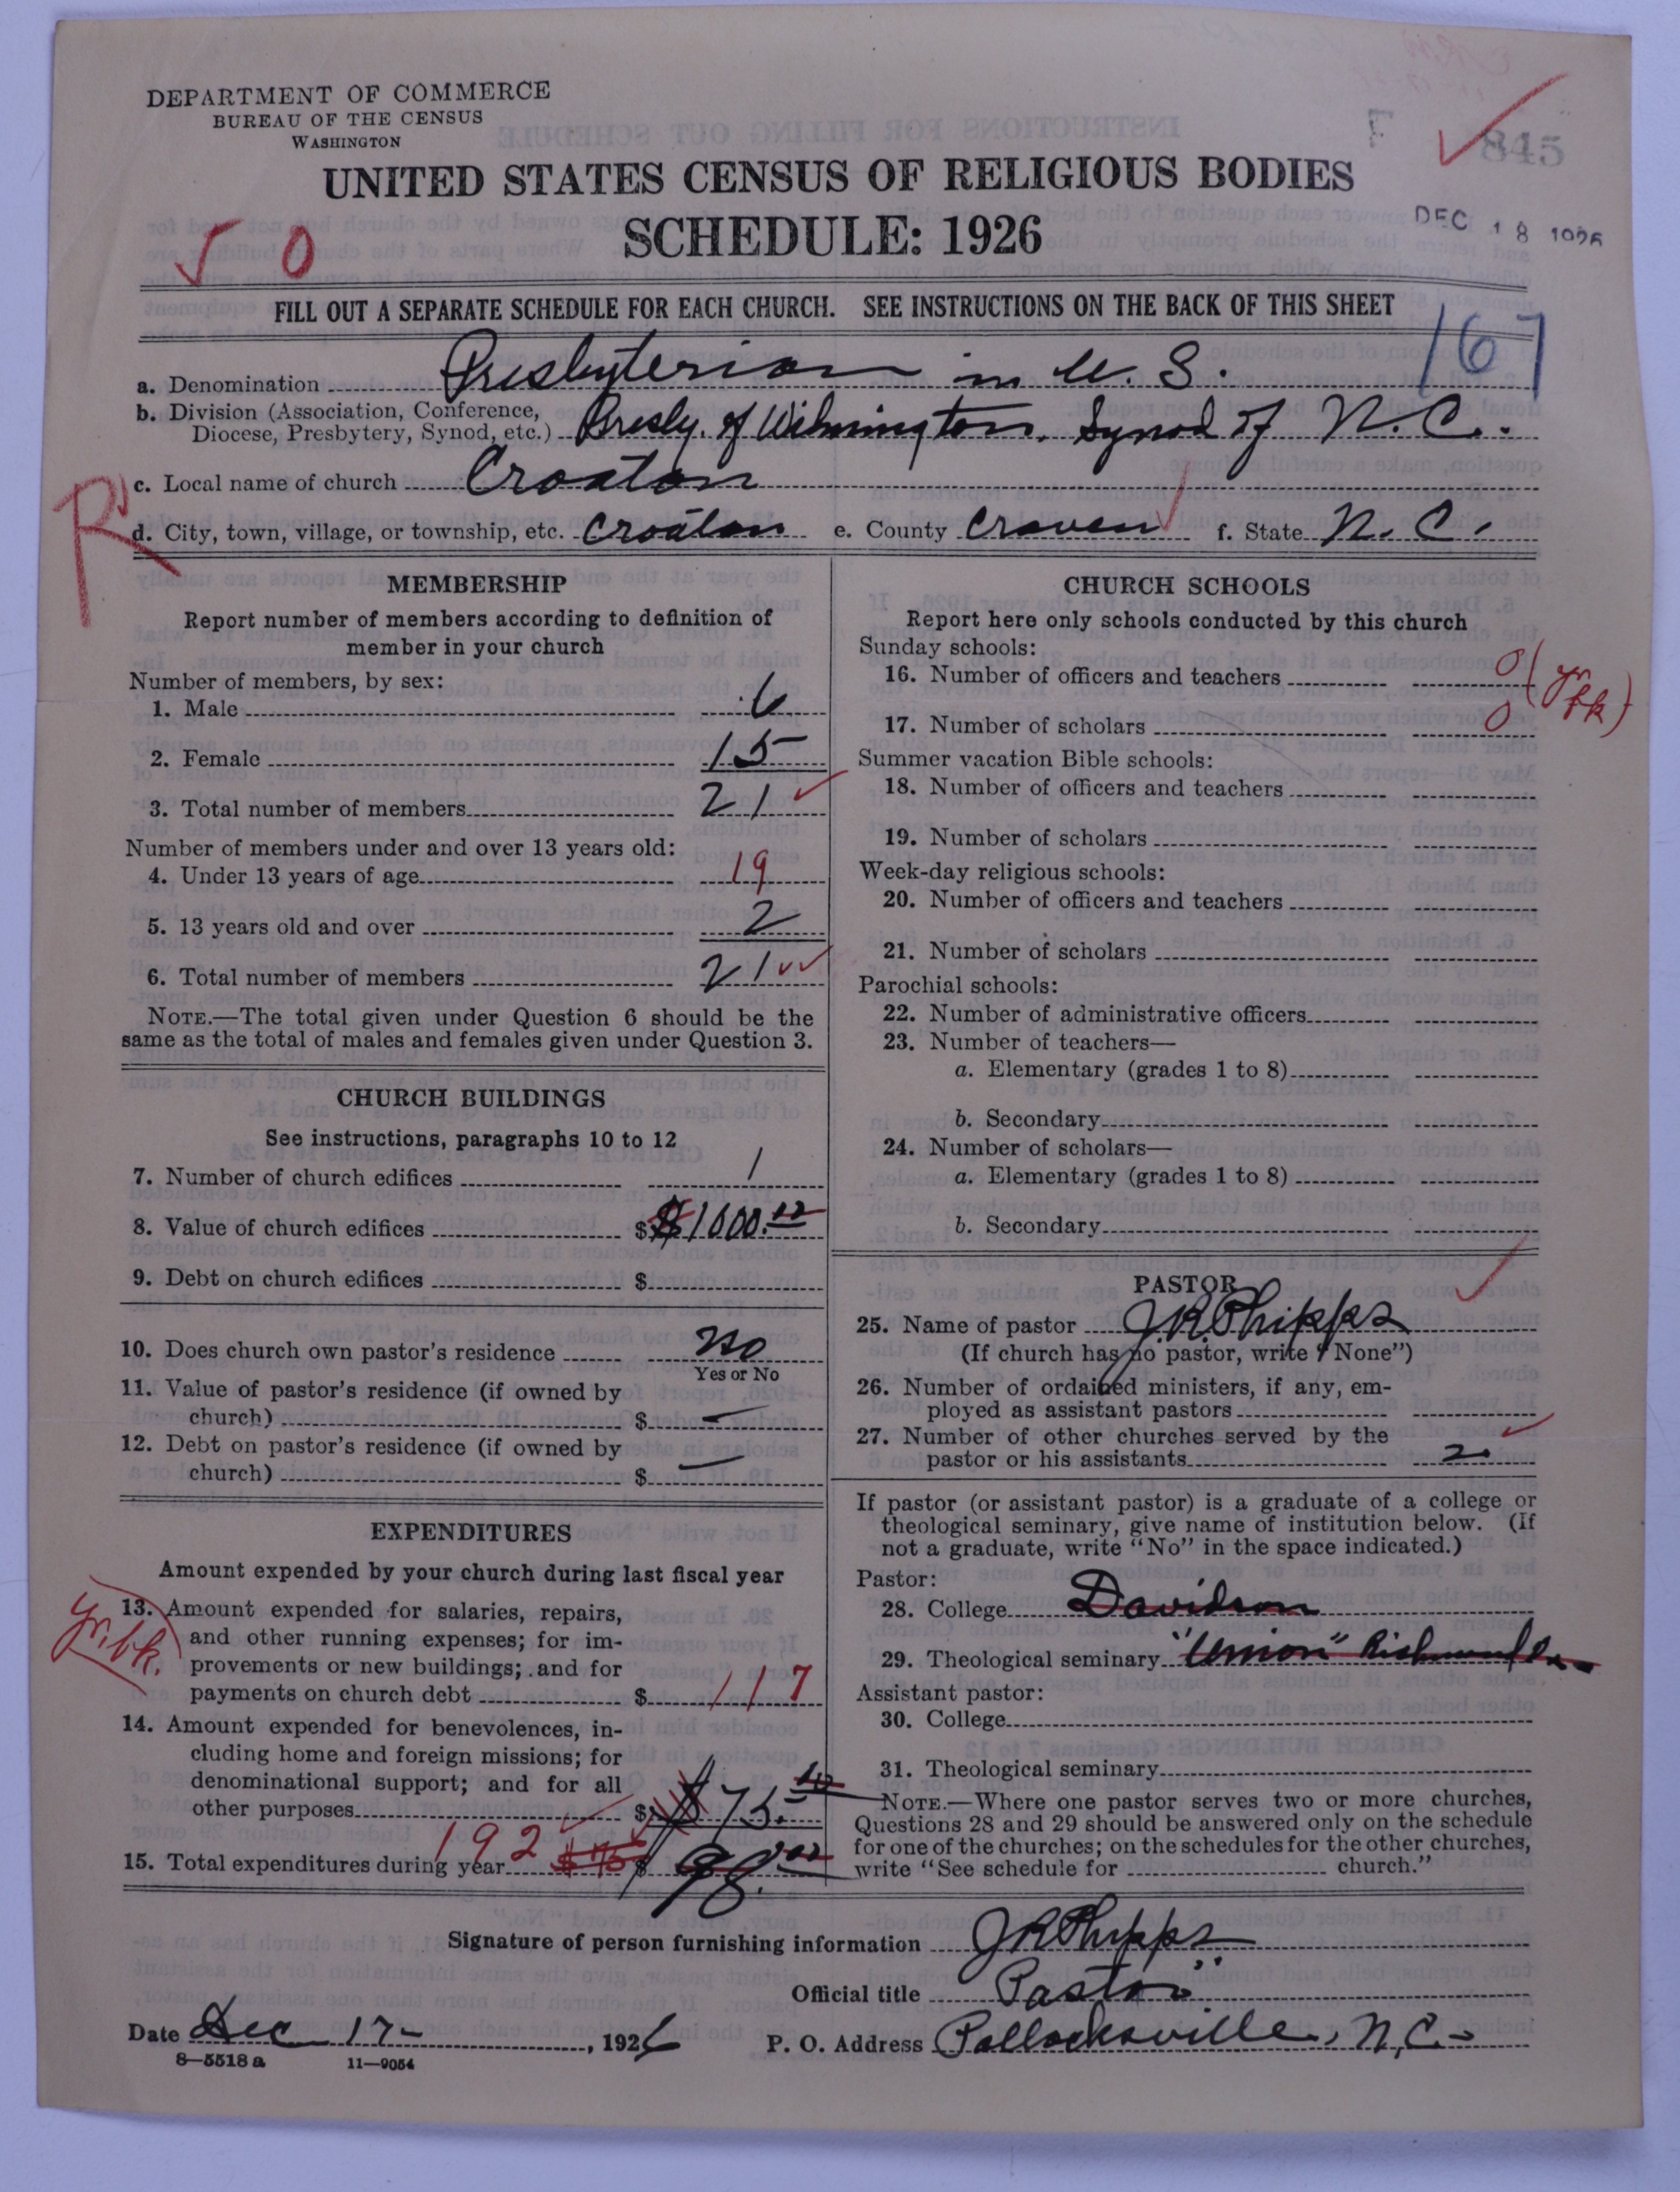 DEPARTMENT OF COMMERCE
BUREAU OF THE CENSUS
WASHINGTON
845
UNITED STATES CENSUS OF RELIGIOUS BODIES
SCHEDULE: 1926
DEC 18 1926
0
FILL OUT A SEPARATE SCHEDULE FOR EACH CHURCH. SEE INSTRUCTIONS ON THE BACK OF THIS SHEET
167
a. Denomination Presbyterian in U. S.
b. Division (Association, Conference,
Diocese, Presbytery, Synod, etc.) Presby. of Wilmington. Synod of N. C.
c. Local name of church Croatan
R
d. City, town, village, or township, etc. Croatan e. County Craven f. State N. C.
MEMBERSHIP
Report number of members according to definition of
member in your church
Number of members, by sex:
1. Male 6
2. Female 15
3. Total number of members 21
Number of members under and over 13 years old:
4. Under 13 years of age 19
5. 13 years old and over 2
6. Total number of members 21
NOTE.—The total given under Question 6 should be the
same as the total of males and females given under Question 3.
CHURCH BUILDINGS
See instructions, paragraphs 10 to 12
7. Number of church edifices 1
8. Value of church edifices $ $1000.00
9. Debt on church edifices $
10. Does church own pastor's residence no
Yes or No
11. Value of pastor's residence (if owned by
church) $ —
12. Debt on pastor's residence (if owned by
church) $ —
EXPENDITURES
Amount expended by your church during last fiscal year
yr. bk.
13. Amount expended for salaries, repairs,
and other running expenses; for im-
provements or new buildings; and for
payments on church debt $ 117
14. Amount expended for benevolences, in-
cluding home and foreign missions; for
denominational support; and for all
other purposes $ $75.
192
15. Total expenditures during year $75 $ 98.00
CHURCH SCHOOLS
Report here only schools conducted by this church
Sunday schools:
16. Number of officers and teachers 0 (yr
17. Number of scholars 0 bk)
Summer vacation Bible schools:
18. Number of officers and teachers
19. Number of scholars
Week-day religious schools:
20. Number of officers and teachers
21. Number of scholars
Parochial schools:
22. Number of administrative officers
23. Number of teachers—
a. Elementary (grades 1 to 8)
b. Secondary
24. Number of scholars—
a. Elementary (grades 1 to 8)
b. Secondary
PASTOR
25. Name of pastor J. R. Phipps
(If church has no pastor, write "None")
26. Number of ordained ministers, if any, em-
ployed as assistant pastors
27. Number of other churches served by the
pastor or his assistants 2
If pastor (or assistant pastor) is a graduate of a college or
theological seminary, give name of institution below. (If
not a graduate, write "No" in the space indicated.)
Pastor:
28. College Davidson
29. Theological seminary "Union" Richmond Va.
Assistant pastor:
30. College
31. Theological seminary
NOTE.—Where one pastor serves two or more churches,
Questions 28 and 29 should be answered only on the schedule
for one of the churches; on the schedules for the other churches,
write "See schedule for church."
Signature of person furnishing information J R Phipps
Official title Pastor
Date Dec 17 - , 1926 P. O. Address Pollocksville, N. C.
8-5518 a 11-9054